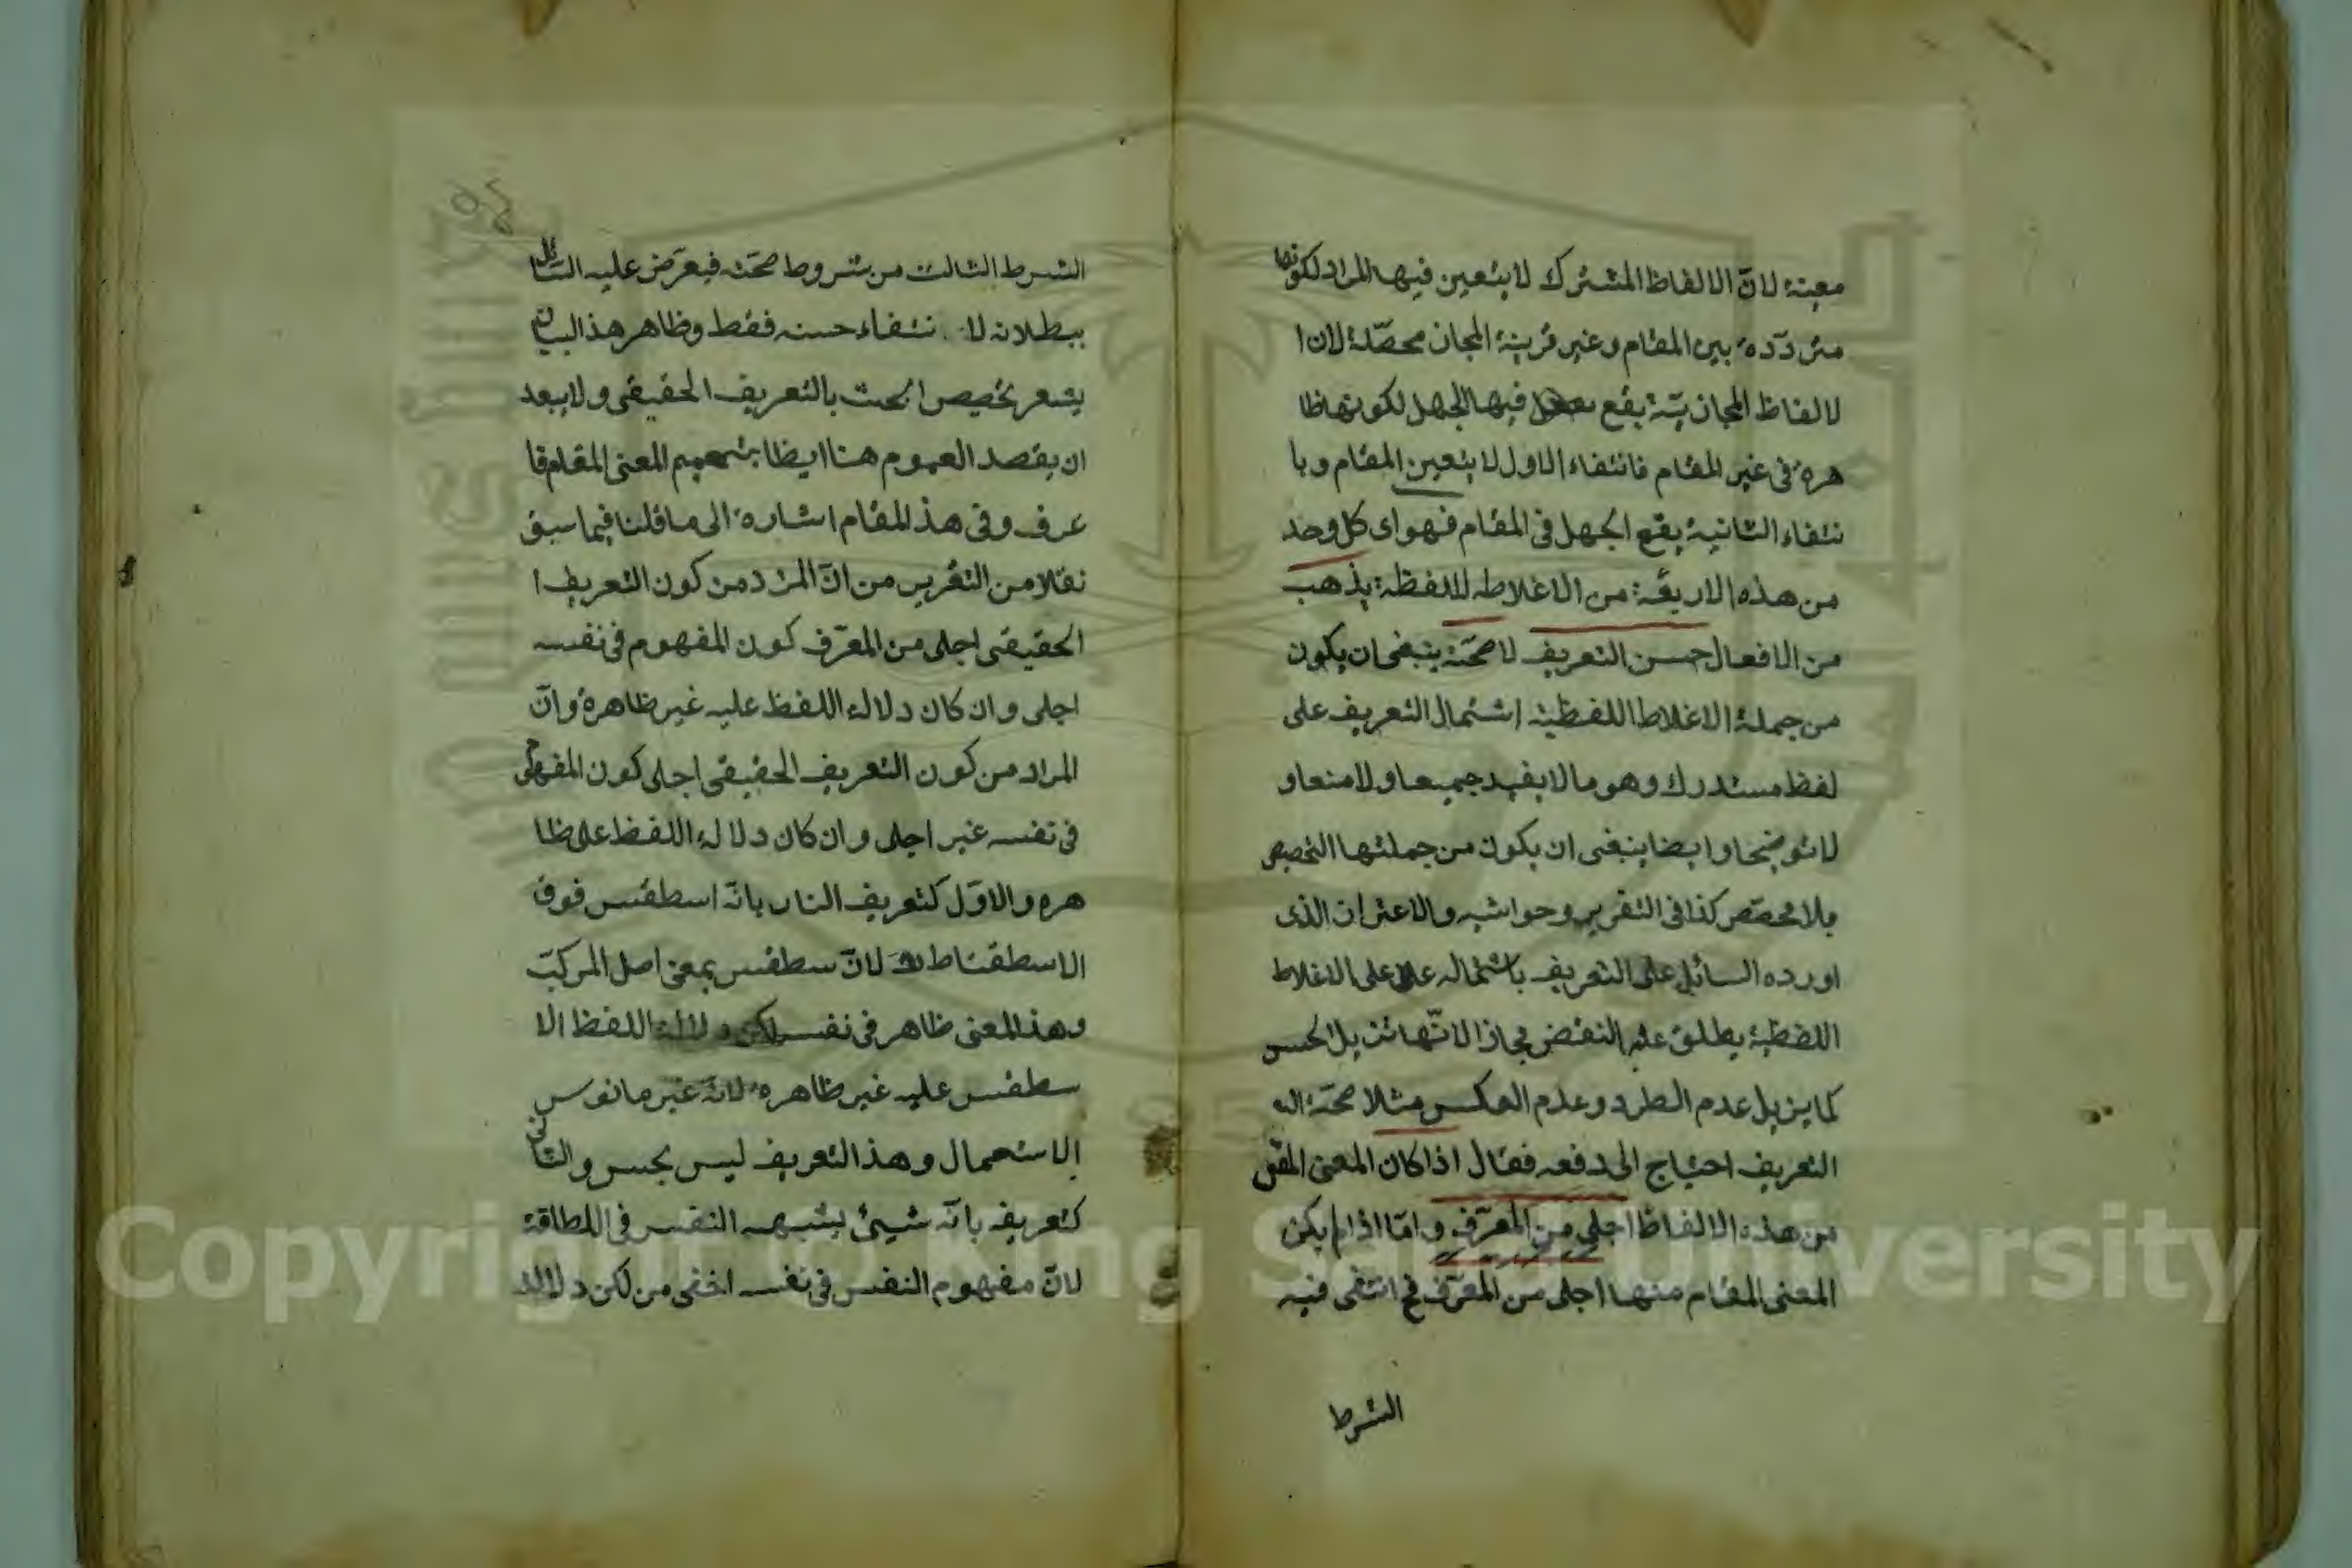 معينة لانّ الالفاظ المشترك لا يتعين فيها المراد لكونها
متردّدة بين المقام وغير قرينة المجان محصّلة لان ا
لالفاظ المجازيّة يقع فيها الجهل لكونها ظا
هرة فى غير المقام فانتفاء الاول لا يتعين المقام وبا
نتفاء الثانية يقع الجهل فى المقام فهو اى كل وحد
من هذه الاربعة من الاغلاط اللفظة يذهب
من الافعال حسن التعريف لا صحّته ينبغى ان يكون
من جملة الاغلاط اللفظية اشتمال التعريف على
لفظ مستدرك وهو ما لا يفيد جميعا ولا منعا و
لا توضيحا وايضا ينبغى ان يكون من جملتها التخصيص
بلا مخصّص كذا فى التقرير وحواشيه والاعتراز الذى
اورده السائل على التعريف باشتماله على الاغلاط
اللفظية يطلق عليه النقض مجازا لانّها تزيل الحسن
كما يزيل عدم الطرد وعدم العكس مثلا صحّة الته
التعريف احتياج الى دفعه فقال اذا كان المعنى المق
من هذه الالفاظ اجلى من المعرّف وامّا اذا لم يكن
المعنى المقام منها اجلى من المعرّف فح انتفى فيه
الشرط
الشرط الثالث من شروط صحّته فيعرّض عليه السائل
ببطلانه لا نتفاء حسنه فقط وظاهر هذ البيان
يشعر تخصيص البحث بالتعريف الحقيقى ولا يبعد
ان يقصد العموم هنا ايظا المعنى المقام
عرف وفى هذ المقام اشارة الى ما قلنا فيما سبق
نقلا من التقرير من انّ المرد من كون التعريف ا
الحقيقى اجلى من المعرّف كون المفهوم فى نفسه
اجلى وان كان دلالة اللفظ عليه غير ظاهرة وانّ
المراد من كون التعريف الحقيقى اجلى كون المفهوم
فى نفسه غير اجلى وان كان دلالة اللفظ على ظا
هره والاوّل كتعريف النار بانّه اسطقس فوق
الاسطقسات لانّ سطقس بمعنى اصل المركّب
وهذ المعنى ظاهر فى نفسه لكن دلالة اللفظ الا
سطقس عليه غير ظاهرة لانّه غير مانوس
الاستعمال وهذ التعريف ليس بحسن والثانى
كتعريفه بانّه شيئ يشبه النفس فى اللطاقة
لانّ مفهوم النفس فى نفسه اخفى من لكن دلالة
Copyright © King Saud University